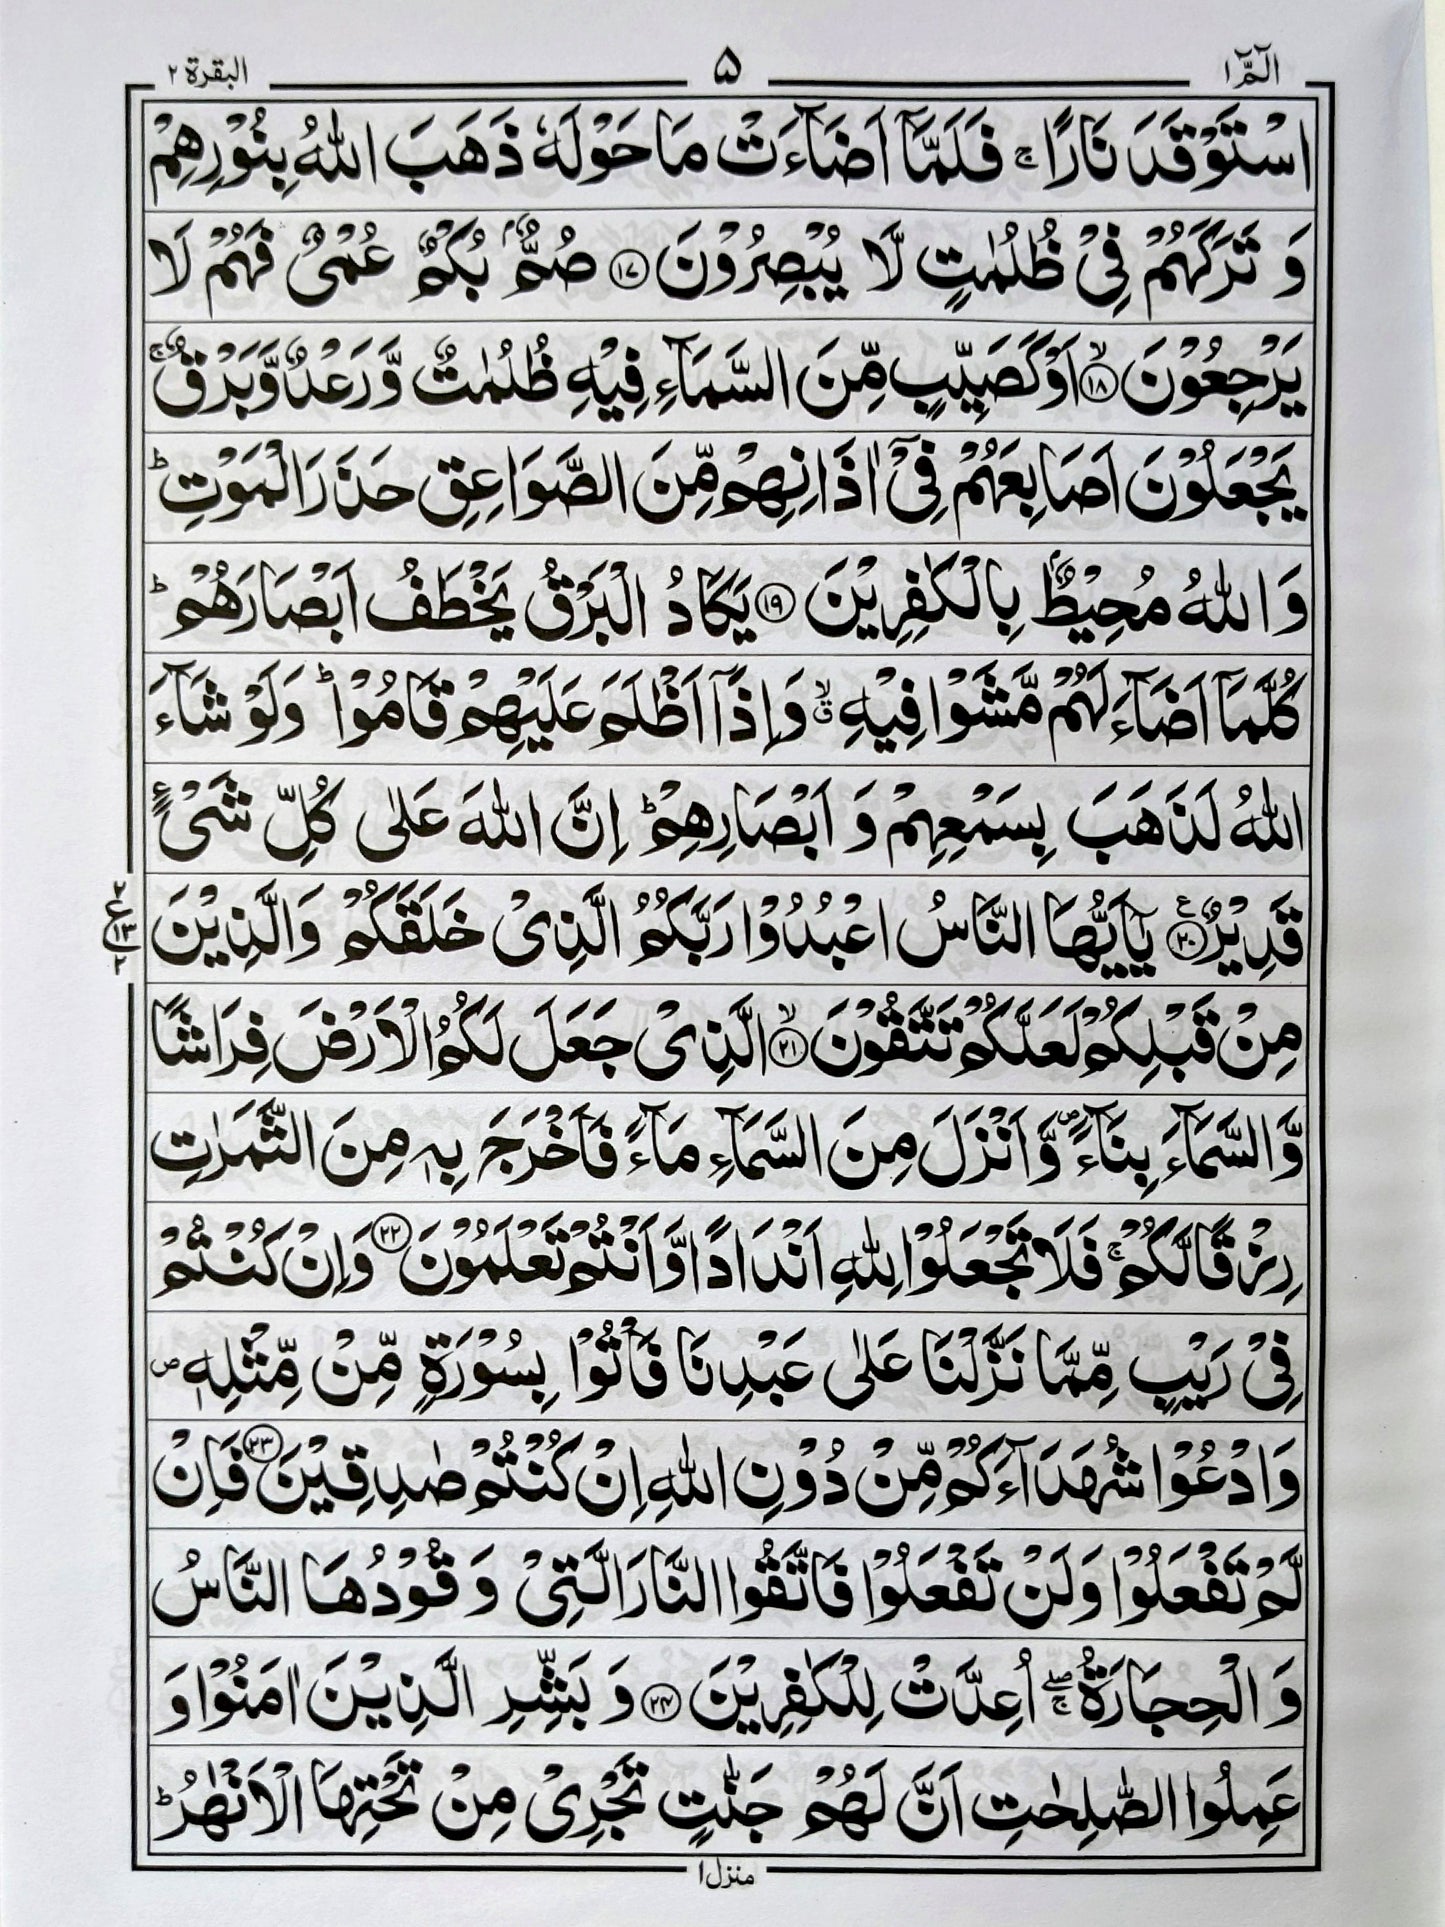 الٓمّٓ ۱
۵
البقرة ۲
اسْتَوْقَدَ نَارًا ۚ فَلَمَّاۤ اَضَآءَتْ مَا حَوْلَهٗ ذَهَبَ اللّٰهُ بِنُوْرِهِمْ
وَ تَرَكَهُمْ فِیْ ظُلُمٰتٍ لَّا یُبْصِرُوْنَ ﴿۱۷﴾ صُمٌّۢ بُكْمٌ عُمْیٌ فَهُمْ لَا
یَرْجِعُوْنَ ﴿۱۸﴾ۙ اَوْ كَصَیِّبٍ مِّنَ السَّمَآءِ فِیْهِ ظُلُمٰتٌ وَّ رَعْدٌ وَّ بَرْقٌ ۚ
یَجْعَلُوْنَ اَصَابِعَهُمْ فِیْۤ اٰذَانِهِمْ مِّنَ الصَّوَاعِقِ حَذَرَ الْمَوْتِ ؕ
وَ اللّٰهُ مُحِیْطٌۢ بِالْكٰفِرِیْنَ ﴿۱۹﴾ یَكَادُ الْبَرْقُ یَخْطَفُ اَبْصَارَهُمْ ؕ
كُلَّمَاۤ اَضَآءَ لَهُمْ مَّشَوْا فِیْهِ ۙۗ وَ اِذَاۤ اَظْلَمَ عَلَیْهِمْ قَامُوْا ؕ وَ لَوْ شَآءَ
اللّٰهُ لَذَهَبَ بِسَمْعِهِمْ وَ اَبْصَارِهِمْ ؕ اِنَّ اللّٰهَ عَلٰی كُلِّ شَیْءٍ
قَدِیْرٌ ﴿۲۰﴾ ع یٰۤاَیُّهَا النَّاسُ اعْبُدُوْا رَبَّكُمُ الَّذِیْ خَلَقَكُمْ وَ الَّذِیْنَ
۲ ع ۱۳ ۲
مِنْ قَبْلِكُمْ لَعَلَّكُمْ تَتَّقُوْنَ ﴿۲۱﴾ۙ الَّذِیْ جَعَلَ لَكُمُ الْاَرْضَ فِرَاشًا
وَّ السَّمَآءَ بِنَآءً ۪ وَّ اَنْزَلَ مِنَ السَّمَآءِ مَآءً فَاَخْرَجَ بِهٖ مِنَ الثَّمَرٰتِ
رِزْقًا لَّكُمْ ۚ فَلَا تَجْعَلُوْا لِلّٰهِ اَنْدَادًا وَّ اَنْتُمْ تَعْلَمُوْنَ ﴿۲۲﴾ وَ اِنْ كُنْتُمْ
فِیْ رَیْبٍ مِّمَّا نَزَّلْنَا عَلٰی عَبْدِنَا فَاْتُوْا بِسُوْرَةٍ مِّنْ مِّثْلِهٖ ۪
وَ ادْعُوْا شُهَدَآءَكُمْ مِّنْ دُوْنِ اللّٰهِ اِنْ كُنْتُمْ صٰدِقِیْنَ ﴿۲۳﴾ فَاِنْ
لَّمْ تَفْعَلُوْا وَ لَنْ تَفْعَلُوْا فَاتَّقُوا النَّارَ الَّتِیْ وَ قُوْدُهَا النَّاسُ
وَ الْحِجَارَةُ ۖۚ اُعِدَّتْ لِلْكٰفِرِیْنَ ﴿۲۴﴾ وَ بَشِّرِ الَّذِیْنَ اٰمَنُوْا وَ
عَمِلُوا الصّٰلِحٰتِ اَنَّ لَهُمْ جَنّٰتٍ تَجْرِیْ مِنْ تَحْتِهَا الْاَنْهٰرُ ؕ
منزل ۱